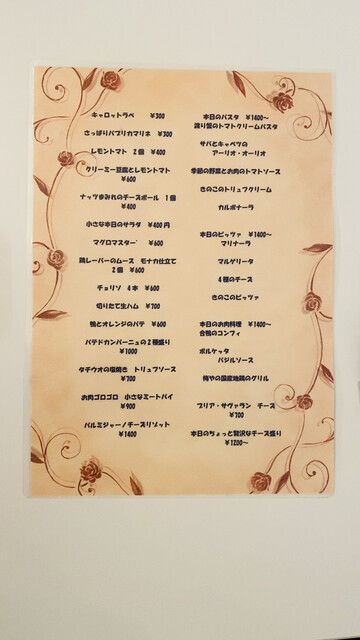 キャロットラペ ¥300
さっぱりパプリカマリネ ¥300
レモントマト 2個 ¥400
クリーミー豆腐とレモントマト
¥600
ナッツまみれのチーズボール 1個
¥400
小さな本日のサラダ ¥400円
マグロマスター ¥600
鶏レーバーのムース モナカ仕立て
2個 ¥600
チョリソ 4本 ¥600
切りたて生ハム ¥700
鴨とオレンジのパテ ¥600
パテドカンパーニュの2種盛り
¥1000
タチウオの塩焼き トリュフソース
¥700
お肉ゴロゴロ 小さなミートパイ
¥900
パルミジャーノチーズリゾット
¥1400
本日のパスタ ¥1400~
渡り蟹のトマトクリームパスタ
サバとキャベツの
アーリオ・オーリオ
季節の野菜とお肉のトマトソース
きのこのトリュフクリーム
カルボナーラ
本日のピッツァ ¥1400~
マリナーラ
マルゲリータ
4種のチーズ
きのこのピッツァ
本日のお肉料理 ¥1400~
合鴨のコンフィ
ポルケッタ
バジルソース
梅やの国産地鶏のグリル
ブリア・サヴァラン チーズ
¥700
本日のちょっと贅沢なチーズ盛り
¥1200~